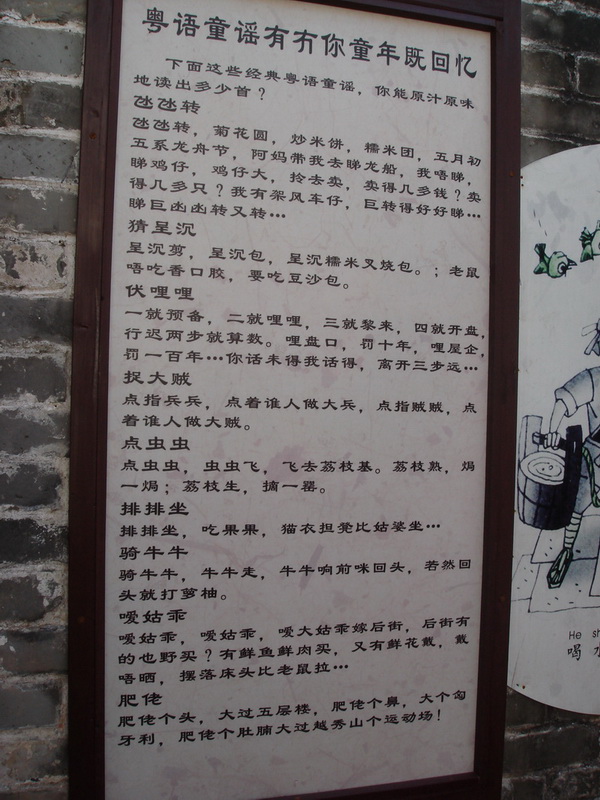 粤语童谣有冇你童年既回忆
下面这些经典粤语童谣，你能原汁原味
地读出多少首？
氹氹转
氹氹转，菊花圆，炒米饼，糯米团，五月初
五系龙舟节，阿妈带我去睇龙船，我唔睇，
睇鸡仔，鸡仔大，拎去卖，卖得几多钱？卖
得几多只？我有架风车仔，巨转得好好睇…
睇巨凼凼转又转…
猜呈沉
呈沉剪，呈沉包，呈沉糯米叉烧包。；老鼠
唔吃香口胶，要吃豆沙包。
伏哩哩
一就预备，二就哩哩，三就黎来，四就开盘，
行迟两步就算数。哩盘口，罚十年，哩屋企，
罚一百年…你话未得我话得，离开三步远…
捉大贼
点指兵兵，点着谁人做大兵，点指贼贼，点
着谁人做大贼。
点虫虫
点虫虫，虫虫飞，飞去荔枝基。荔枝熟，焗
一焗；荔枝生，摘一罂。
排排坐
排排坐，吃果果，猫衣担凳比姑婆坐…
骑牛牛
骑牛牛，牛牛走，牛牛响前咪回头，若然回
头就打萝柚。
嗳姑乖
嗳姑乖，嗳姑乖，嗳大姑乖嫁后街，后街有
的也野买？有鲜鱼鲜肉买，又有鲜花戴，戴
唔晒，摆落床头比老鼠拉…
肥佬
肥佬个头，大过五层楼，肥佬个鼻，大个匃
牙利，肥佬个肚腩大过越秀山个运动场！
He sh
喝水